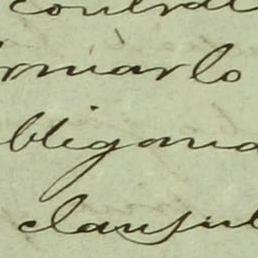 contrat
irmarlo
obligand
clausul